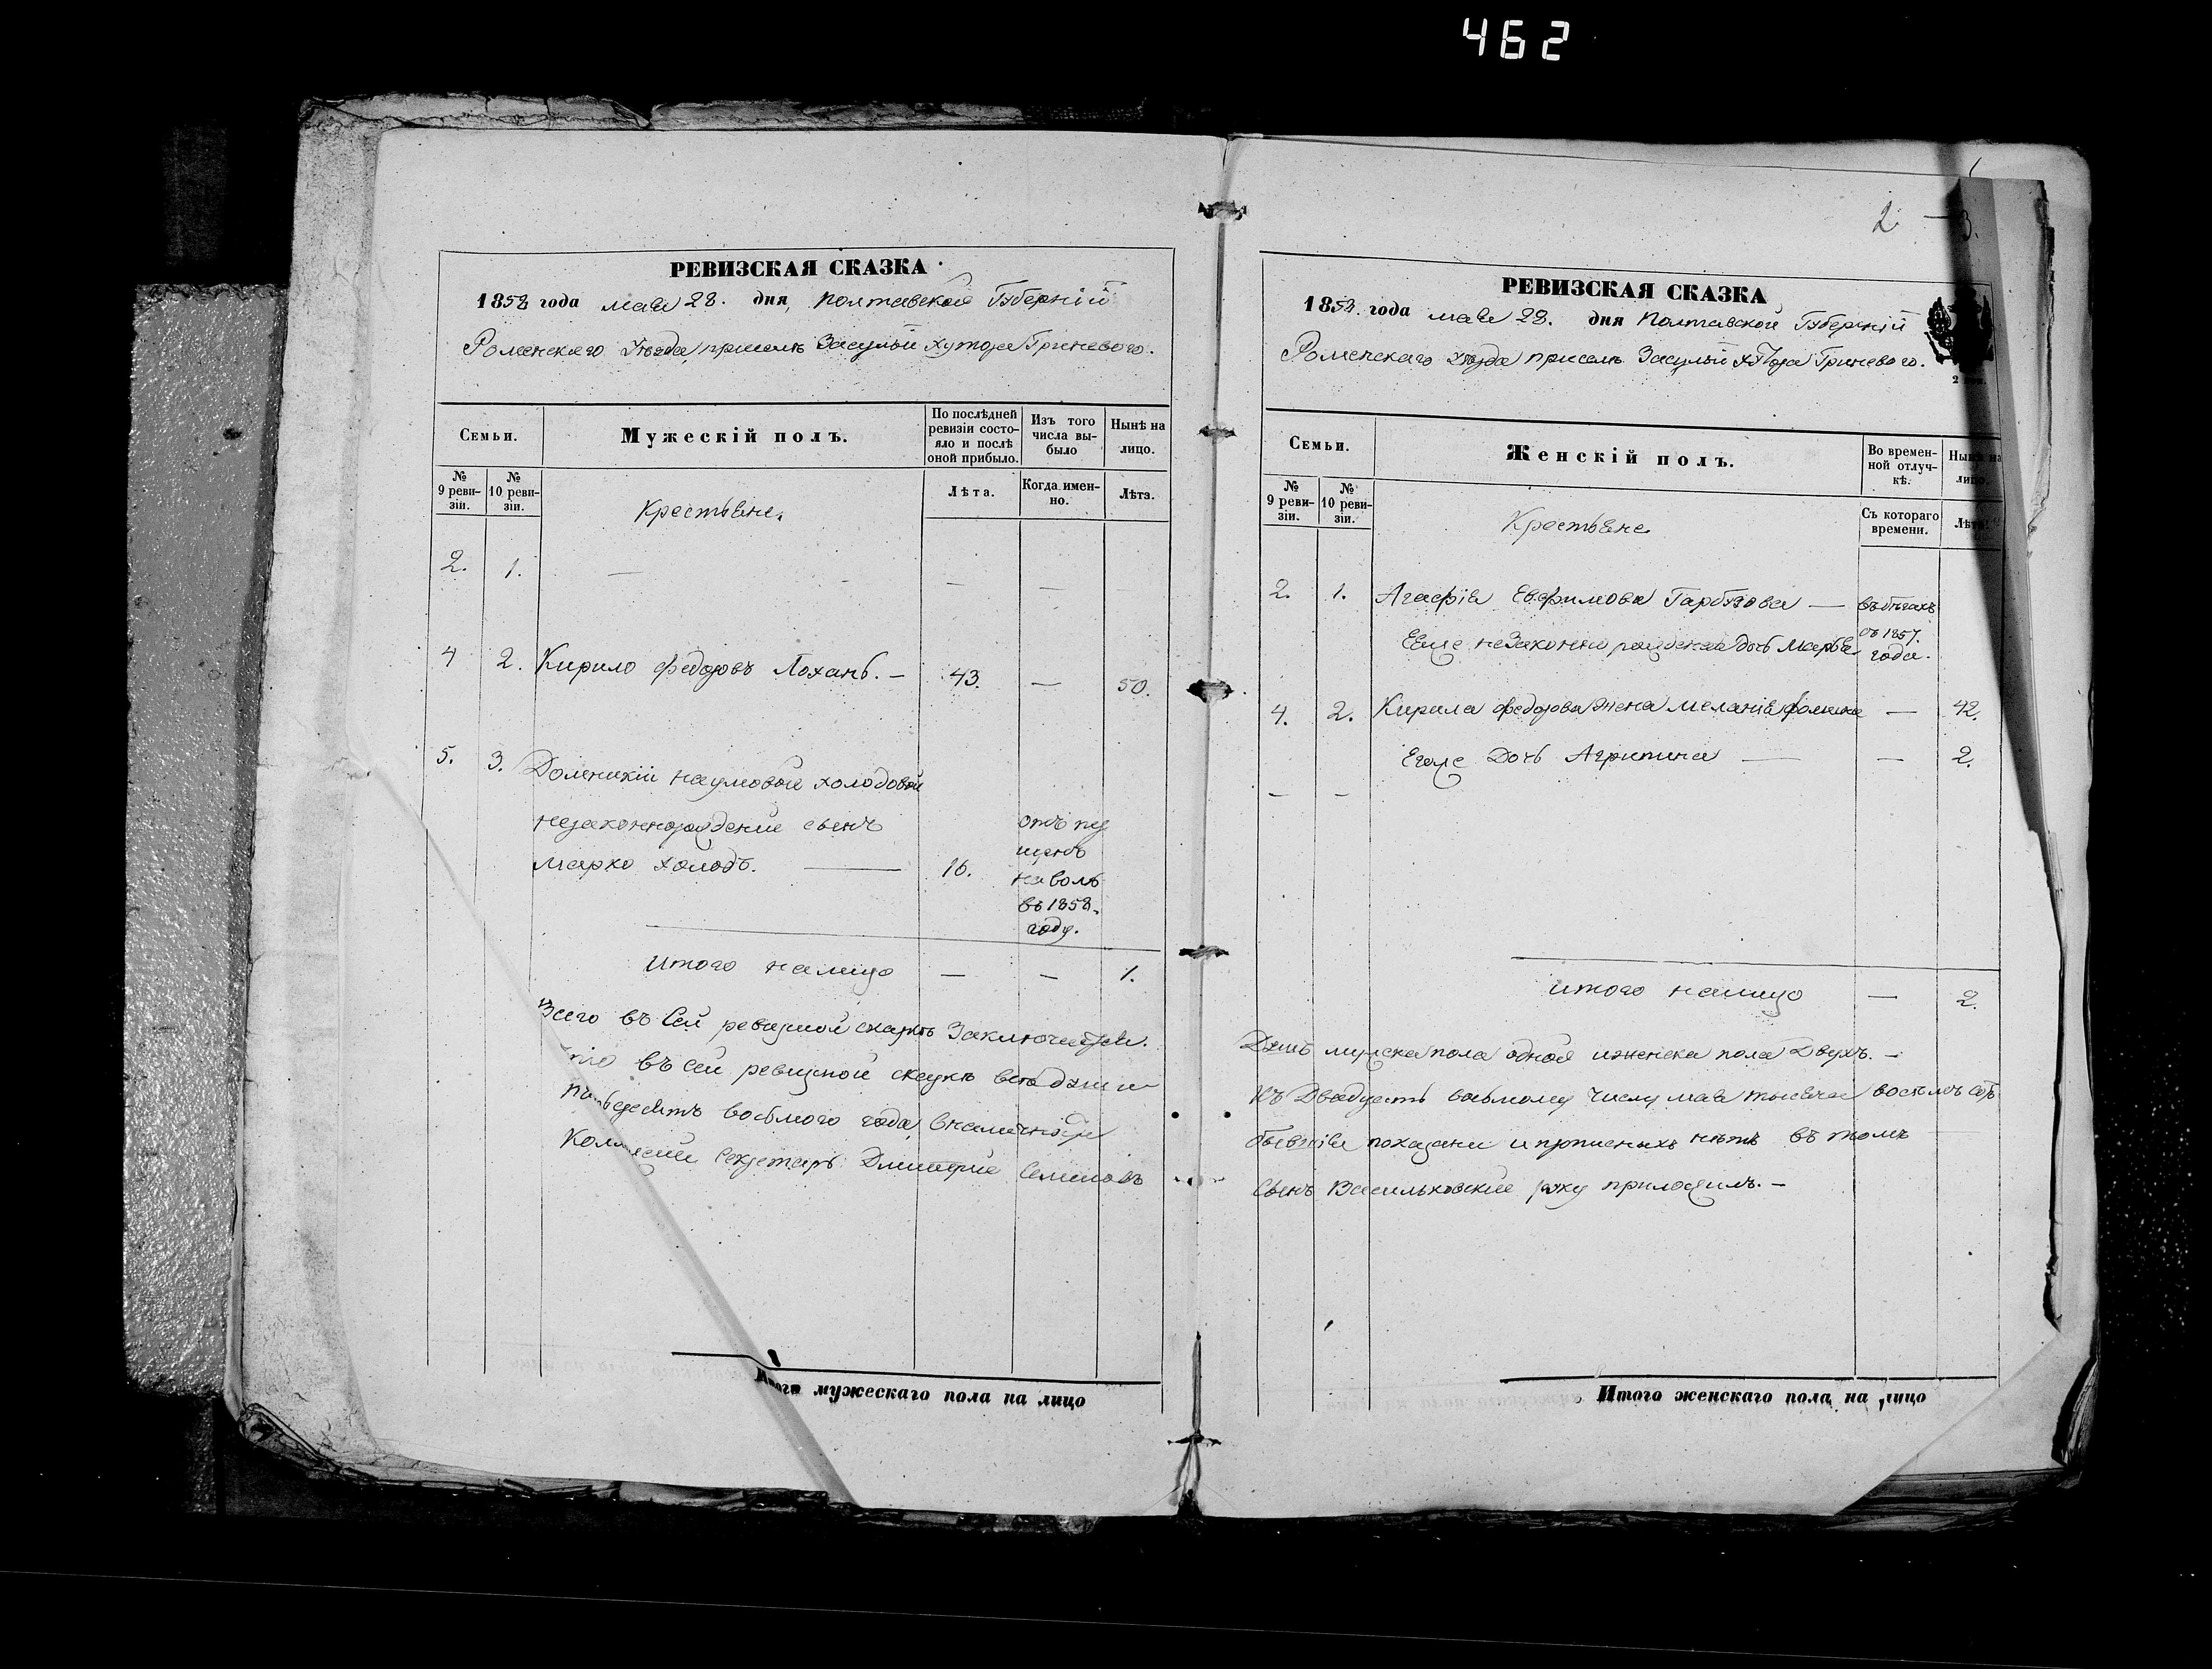 462
РЕВИЗСКАЯ СКАЗКА
1858 года мая 28. дня, Полтавской Губерніи
Роменскаго Уезда, присемъ Засульи хутора Гриневого.
Семьи.
Мужескій полъ.
По послѣдней ревизіи состояло и послѣ оной прибыло.
Изъ того числа выбыло
Нынѣ на лицо.
№ 9 ревизіи.
№ 10 ревизіи.
Крестьяне.
Лѣта.
Когда именно.
Лѣта.
2. 1. — — —
4 2. Кирило Федоровъ Лохань. — 43. — 50.
5. 3. Домникіи Наумовой Холодовой
незаконнорожденые сынъ
Марко Холодъ. — 16.
отъпу
щенъ
на воль
въ 1858.
году.
Итого налицо — — 1.
Всего въ Сей ревизкой скаскѣ Заключается.
въ сей ревизкой скаскѣ все души
пятьдесятъ восьмого года, вналичнос
Секретарь Дмитрие Семеновъ
Итого мужескаго пола на лицо
2 — 3.
РЕВИЗСКАЯ СКАЗКА
1858. года мая 28. дня Полтавской Губерніи
Роменскаго Уезда присемъ Засульи хутора Гриневого.
Семьи.
Женскій полъ.
Во временной отлучкѣ.
Нынѣ на лицо.
№ 9 ревизіи.
№ 10 ревизіи.
Крестьяне
Съ котораго времени.
Лѣта.
2. 1. Агафія Евфимова Гарбузова — въ бѣгахъ
Ееже незаконно рожденая дочь Марья
съ 1857.
года.
4. 2. Кирила Федорова жена Меланія Фомина — 42.
Егоже Дочь Агрипина — — 2.
— —
Итого налицо — 2.
Душъ мужска пола одной иженска пола Двухъ. —
Къ Двадцать восьмому числу мая тысяча восемь сотъ
бывшія показани и прописныхъ нетъ въ томъ
сынъ Васильковские руку приложилъ. —
Итого женскаго пола на лицо